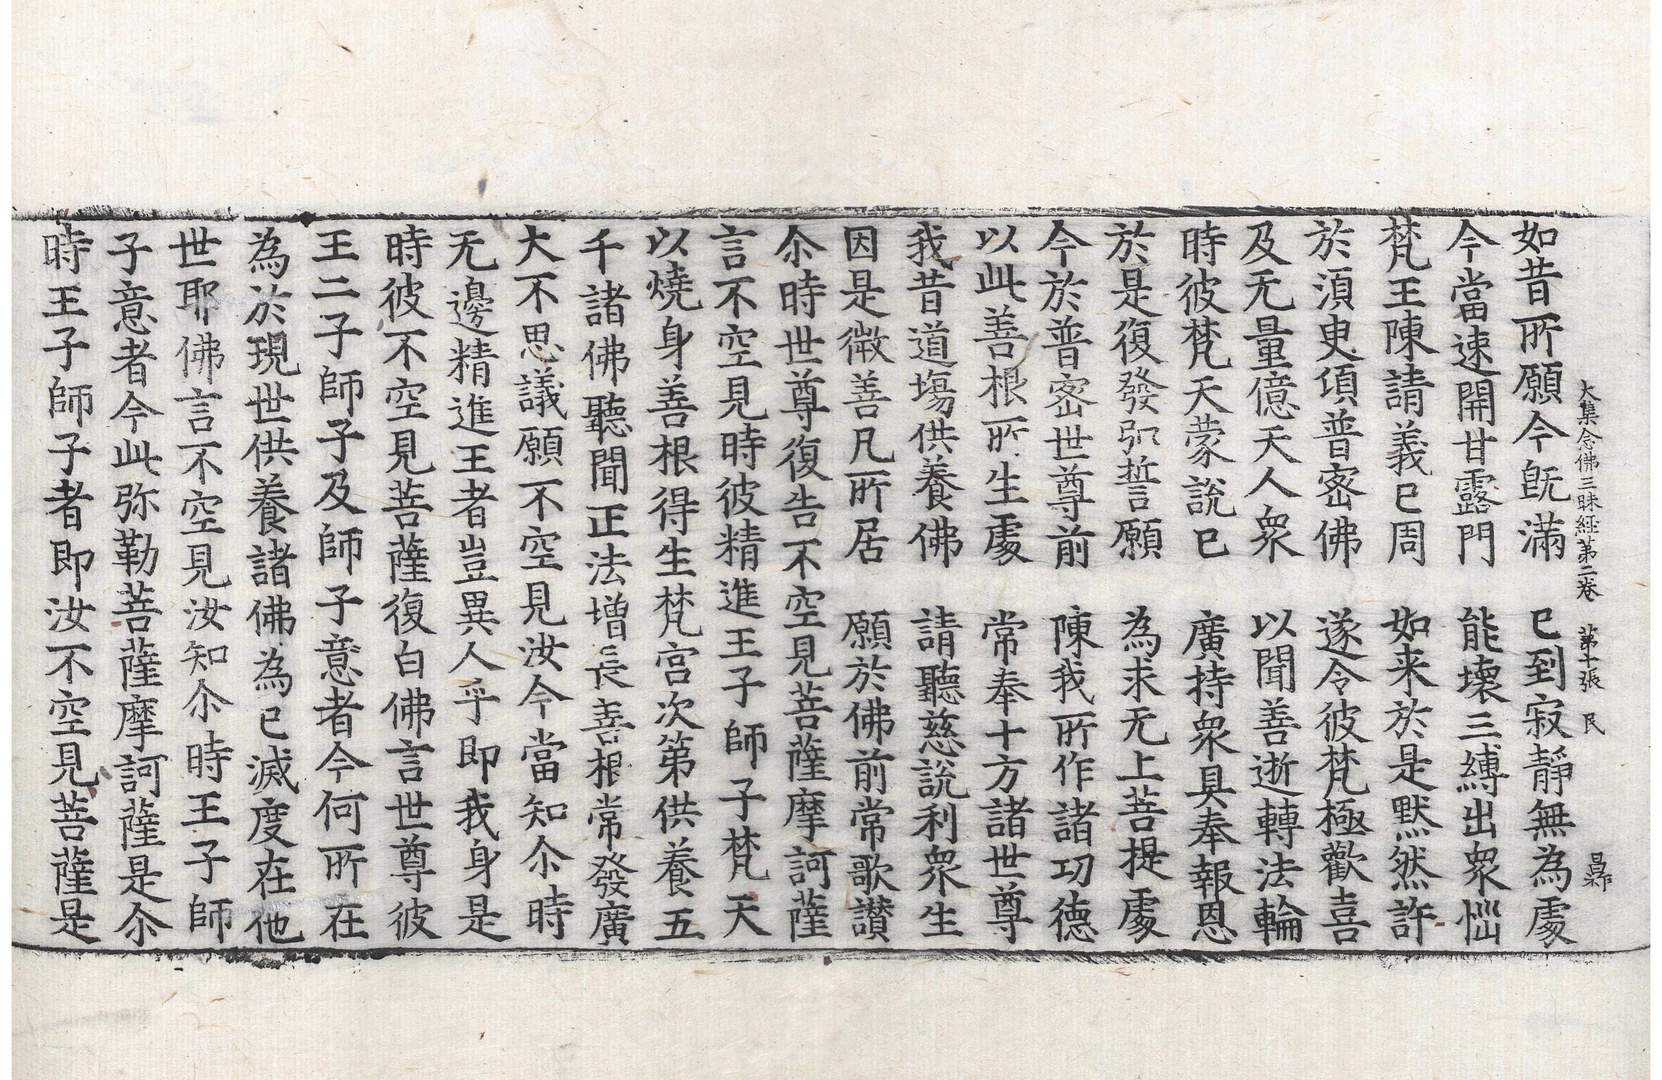 大集念佛三昧經第二卷 第十張 民
如昔所願今旣滿 已到寂靜無為處
今當速開甘露門 能壞三縛出衆惱
梵王陳請義已周 如来於是默然許
於湏臾頃普密佛 遂令彼梵極歡喜
及无量億天人衆 以聞善逝轉法輪
時彼梵天蒙說已 廣持衆具奉報恩
於是復發弘誓願 為求无上菩提處
今於普密世尊前 陳我所作諸功德
以此善根所生處 常奉十方諸世尊
我昔道場供養佛 請聽慈說利衆生
因是微善凡所居 願於佛前常歌讃
尒時世尊復告不空見菩薩摩訶薩
言不空見時彼精進王子師子梵天
以燒身善根得生梵宮次第供養五
千諸佛聽聞正法增長善根常發廣
大不思議願不空見汝今當知尒時
无邊精進王者豈異人乎即我身是
時彼不空見菩薩復白佛言世尊彼
王二子師子及師子意者今何所在
為於現世供養諸佛為已滅度在他
世耶佛言不空見汝知尒時王子師
子意者今此弥勒菩薩摩訶薩是尒
時王子師子者即汝不空見菩薩是